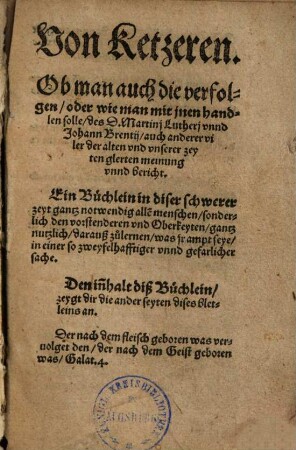 Von Ketzeren.
Ob man auch die verfol-
gen / oder wie man mit jnen hand-
len solle / des D. Martinj Lutherj vnnd
Johann Brentij / auch anderer vi-
ler der alten vnd vnserer zey
ten glerten meinung
vnnd bericht.
Ein Büchlein in diser schwerer
zeyt gantz notwendig allē menschen / sonder-
lich den vorstenderen vnd Oberkeyten / gantz
nutzlich / darauß zůlernen / was jr ampt seye /
in einer so zweyfelhafftiger vnnd gefarlicher
sache.
Den iñhalt diß Büchlein /
zeygt dir die ander seyten dises blet-
leins an.
Der nach dem fleisch geboren was ver-
uolget den / der nach dem Geist geboren
was / Galat. 4.
KREISBIBLIOTHEK
AUGSBURG